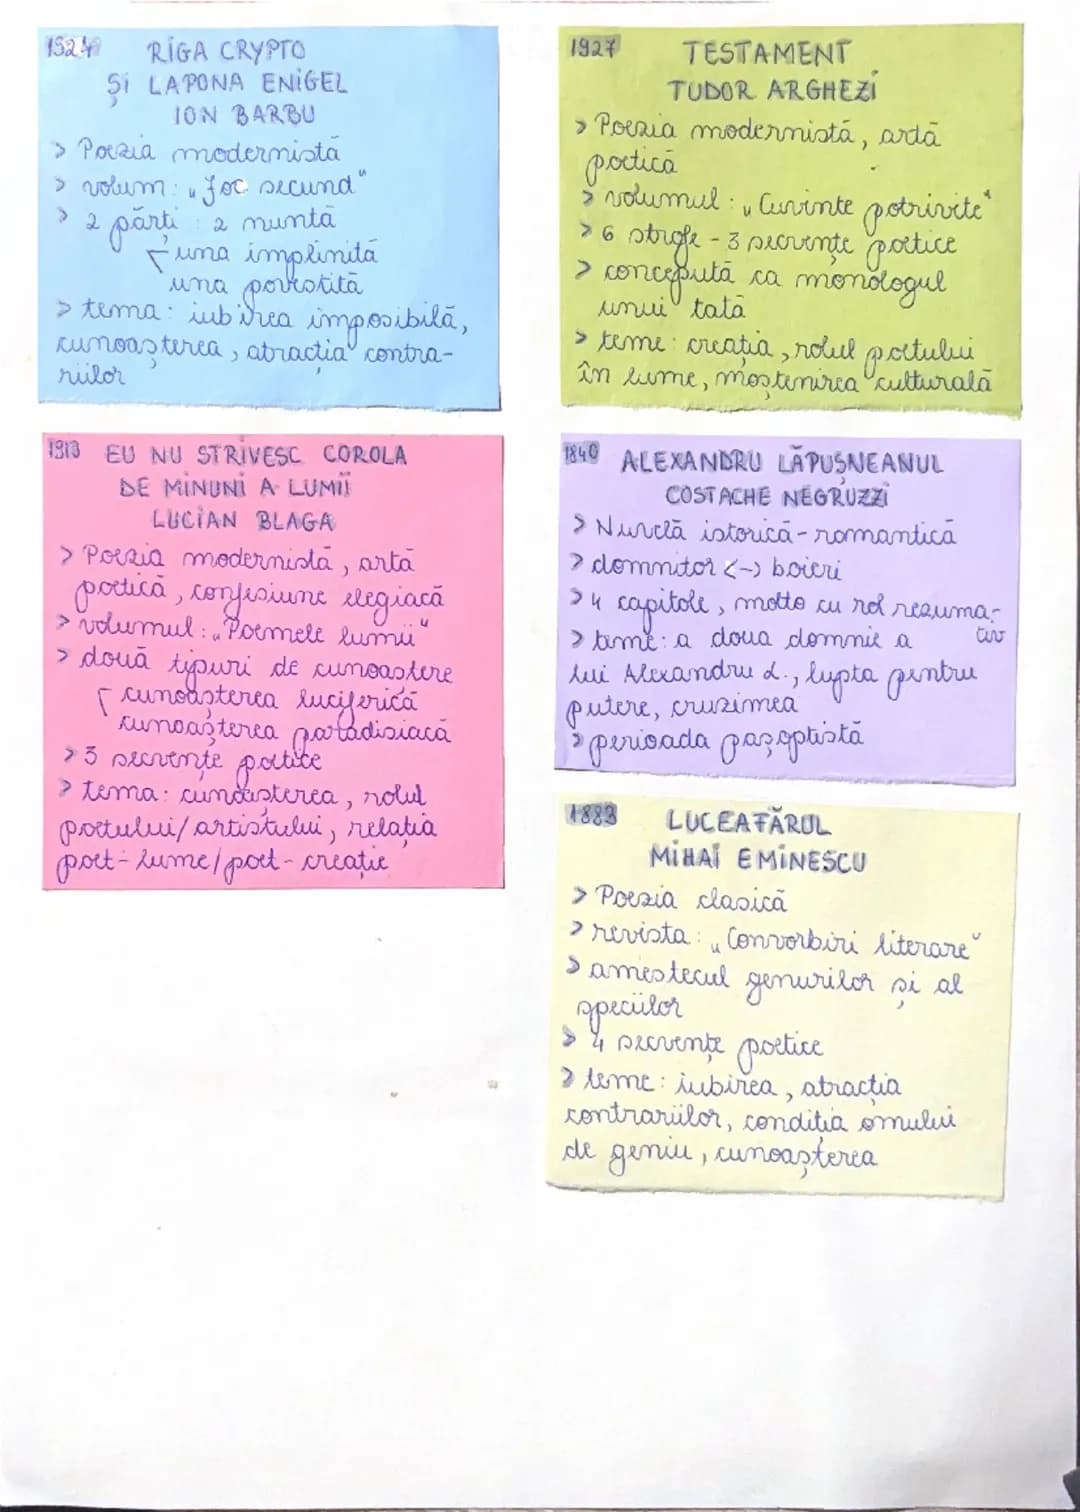 1924 RIGA CRYPTO
ȘI LAPONA ENIGEL
ION BARBU
> Poezia modernistă
> volum: „Joc secund"
> 2 părți : 2 nuntă
una implinită
una povestită
> tema: iubirea imposibilă,
cunoașterea, atracția contra-
riilor
1927 TESTAMENT
TUDOR ARGHEZI
> Poezia modernistă, ardă
poetică
> volumul: „Cuvinte potrivite"
> 6 strofe - 3 secvențe poetice
> concepută ca monologul
unui tată
> teme: creația, rolul poetului
în lume, moștenirea culturală
1919 EU NU STRIVESC COROLA
DE MINUNI A LUMII
LUCIAN BLAGA
> Poezia modernistă, artă
poetică, confesiune elegiacă
> volumul: „Poemele lumii"
> două tipuri de cunoaștere
cunoașterea luciferică
cunoașterea paradisiacă
> 3 secvențe poetice
> tema: cunoașterea, rolul
poetului/artistului, relația
poet-lume/poet-creație
1840 ALEXANDRU LĂPUȘNEANUL
COSTACHE NEGRUZZI
> Nuvelă istorică-romantică
> domnitor <-> boieri
> 4 capitole, motto cu rol rezuma-
tiv
> teme: a doua domnie a
lui Alexandru L., lupta pentru
putere, cruzimea
> perioada pașoptistă
1883 LUCEAFĂRUL
MIHAI EMINESCU
> Poezia clasică
> revista: „Convorbiri literare"
> amestecul genurilor și al
speciilor
> 4 secvențe poetice
> teme: iubirea, atracția
contrariilor, condiția omului
de geniu, cunoașterea